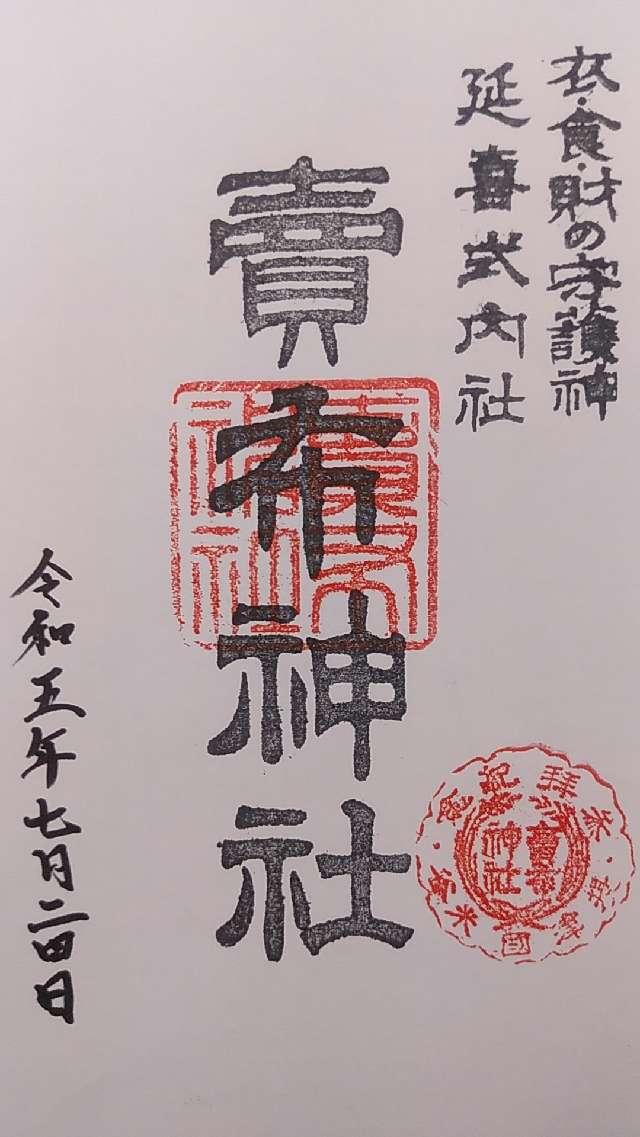 衣・食・財の守護神
延喜式内社
賣布神社
賣布
神社
参拝記念
賣布
神社
令和五年七月二四日